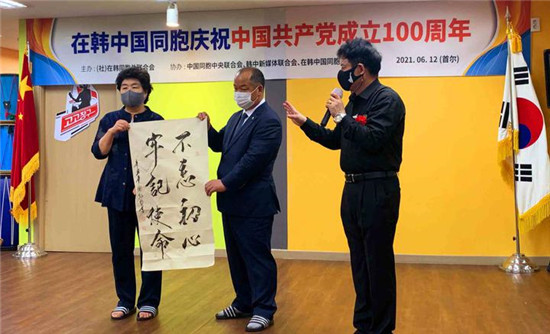 在韩中国同胞庆祝中国共产党成立100周年
主办：(社)在韩同胞总联合会 协办：中国同胞中央联合会、韩中新媒体联合会、在韩中国同胞
2021. 06. 12 (首尔)
고고장구
不忘初心
牢記使命